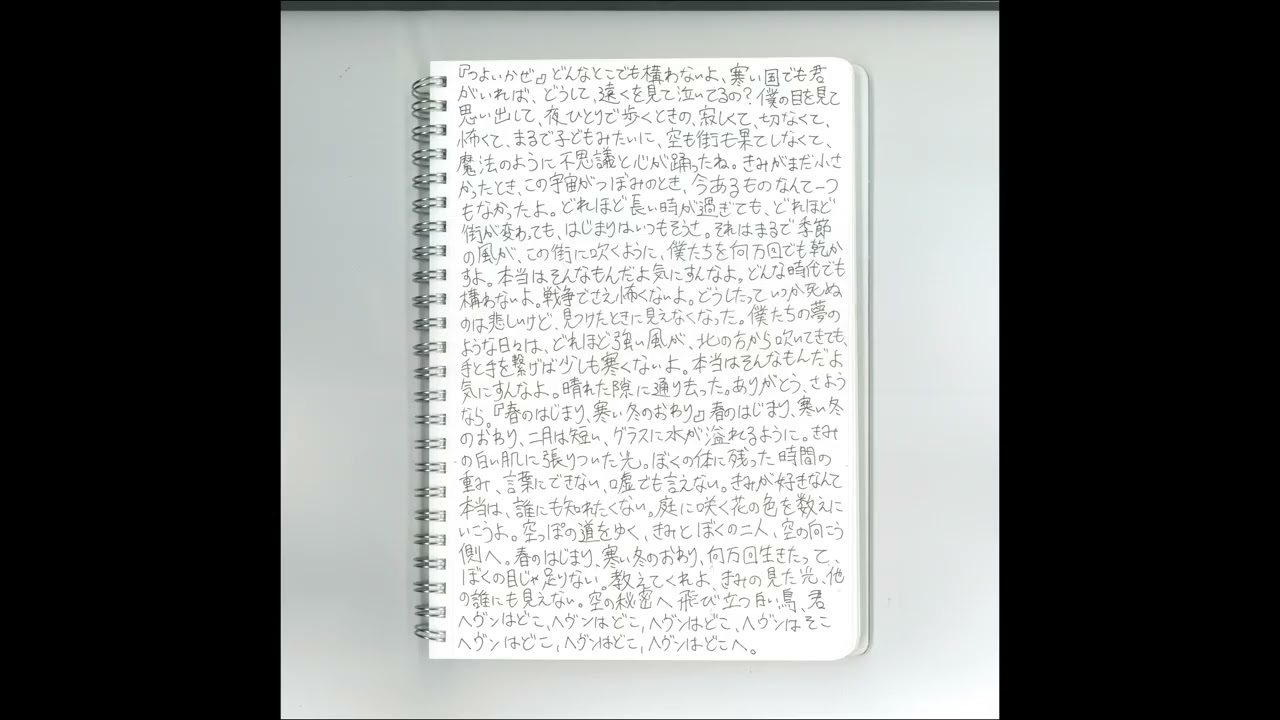 『つよいかぜ』どんなとこでも構わないよ、寒い国でも君
がいれば、どうして、遠くを見て泣いてるの？僕の目を見て
思い出して、夜ひとりで歩くときの、寂しくて、切なくて、
怖くて、まるで子どもみたいに、空も街も果てしなくて、
魔法のように不思議と心が踊ったね。きみがまだ小さ
かったとき、この宇宙がつぼみのとき、今あるものなんて一つ
もなかったよ。どれほど長い時が過ぎても、どれほど
街が変わっても、はじまりはいつもそうさ。それはまるで季節
の風が、この街に吹くように、僕たちを何万回でも乾か
すよ。本当はそんなもんだよ気にすんなよ。どんな時代でも
構わないよ。戦争でさえ怖くないよ。どうしたっていつか死ぬ
のは悲しいけど、見つけたときに見えなくなった。僕たちの夢の
ような日々は、どれほど強い風が、北の方から吹いてきても、
手と手を繋げば少しも寒くないよ。本当はそんなもんだよ
気にすんなよ。晴れた隙に通り去った。ありがとう、さよう
なら。『春のはじまり、寒い冬のおわり』春のはじまり、寒い冬
のおわり、二月は短い、グラスに水が溢れるように。きみ
の白い肌に張りついた光。ぼくの体に残った時間の
重み、言葉にできない、嘘でも言えない。きみが好きなんて
本当は、誰にも知れたくない。庭に咲く花の色を数えに
いこうよ。空っぽの道をゆく、きみとぼくの二人、空の向こう
側へ。春のはじまり、寒い冬のおわり、何万回生きたって、
ぼくの目じゃ足りない。教えてくれよ、きみの見た光、他
の誰にも見えない。空の秘密へ飛び立つ白い鳥、君
ヘヴンはどこ、ヘヴンはどこ、ヘヴンはどこ、ヘヴンはそこ
ヘヴンはどこ、ヘヴンはどこ、ヘヴンはどこへ。